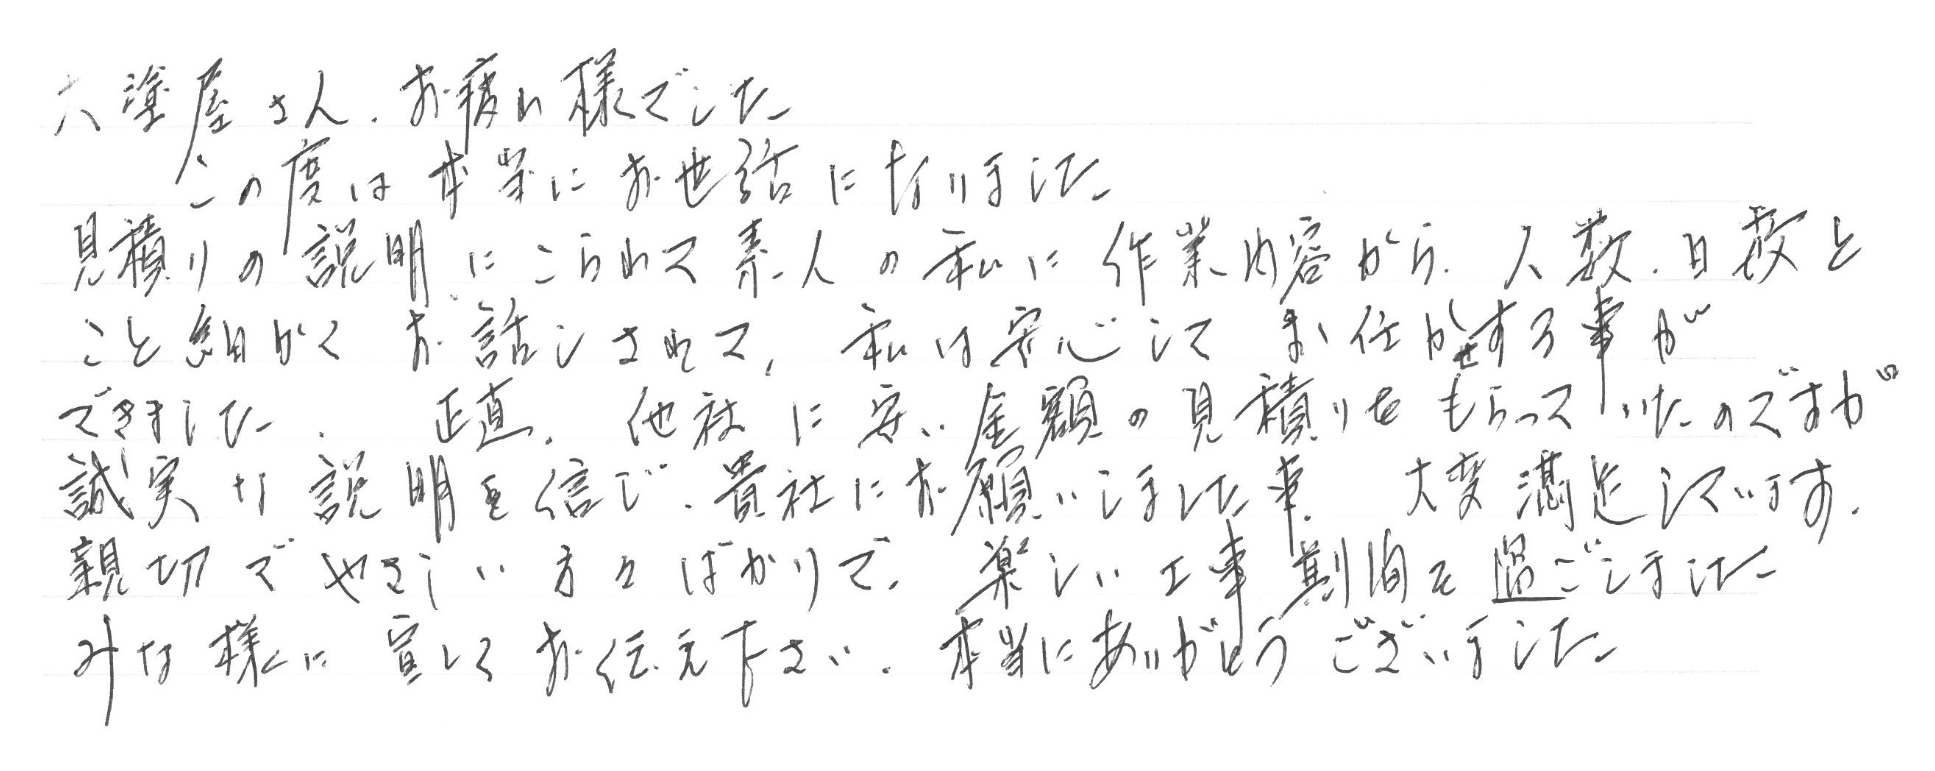 大塗屋さん、お疲れ様でした
この度は本当にお世話になりました
見積りの説明にこられて素人の私に作業内容から、人数、日数と
こと細かくお話しされて、私は安心してお任かせする事が
できました、正直、他社に安い金額の見積りをもらっていたのですが
誠実な説明を信じ、貴社にお願いしました事、大変満足しています。
親切でやさしい方々ばかりで、楽しい工事期間を過ごしました
みな様に宜しくお伝え下さい、本当にありがとうございました